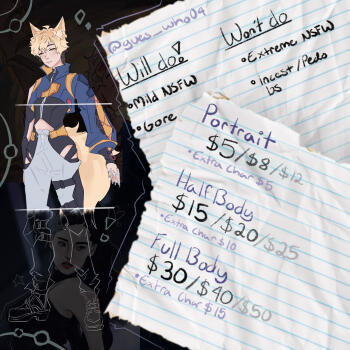 @gues_who04
Will do!
•Mild NSFW
•Gore
Won't do
•Extreme NSFW
•Incast/Pedo
bs
Portrait
$5/$8/$12
•Extra Char $5
Half Body
$15/$20/$25
•Extra Char $10
Full Body
$30/$40/$50
•Extra Char $15